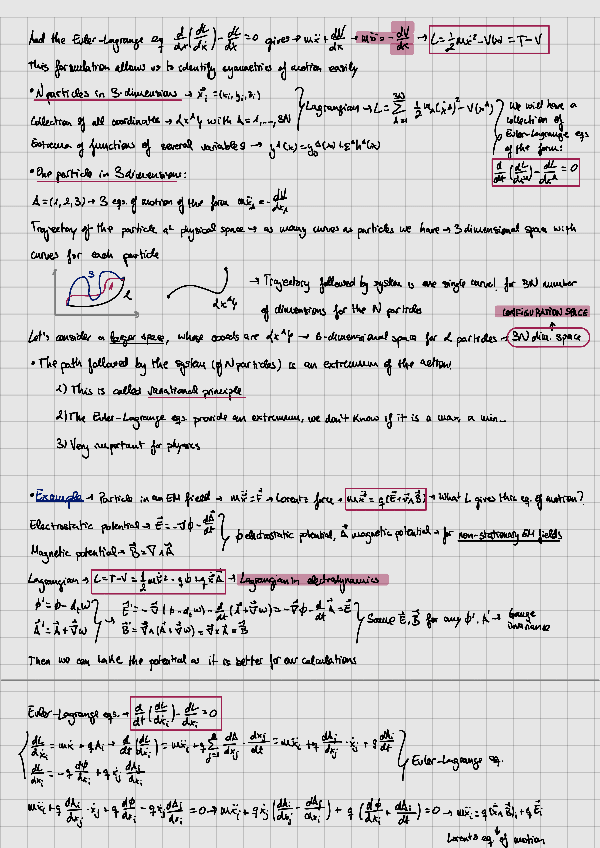 And the Euler-Lagrange eq d/dx (dL/dẋ) - dL/dx = 0 gives → mẍ + dV/dx → mẍ = - dV/dx → L = 1/2 mẋ² - V(x) = T - V
This formulation allows us to identify symmetries of motion easily
• N particles in 3-dimensions → x⃗i = (xi, yi, zi)
Collection of all coordinates → {x^A} with A = 1, ..., 3N
Lagrangian → L = Σ_{A=1}^{3N} 1/2 m_A (ẋ^A)² - V(x^A)
Extrema of functions of several variables → y^A(x) = y_0^A(x) + ε^A h^A(x)
We will have a
collection of
Euler-Lagrange eqs
of the form:
d/dt (dL/dẋ^A) - dL/dx^A = 0
• One particle in 3 dimensions:
A = (1, 2, 3) → 3 eqs. of motion of the form mẍ_A = - dV/dx_A
Trajectory of the particle at physical space → as many curves as particles we have → 3 dimensional space with
curves for each particle
3 1 2
{x^A}
→ Trajectory followed by system is one single curve! for 3N number
of dimensions for the N particles
CONFIGURATION SPACE
Let's consider a larger space, whose coords are {x^A} → 6-dimensional space for 2 particles → 3N dim. space
• The path followed by the system (of N particles) is an extremum of the action!
1) This is called variational principle
2) The Euler-Lagrange eqs. provide an extremum, we don't know if it is a max, a min...
3) Very important for physics
• Example → Particle in an EM field → mẍ⃗ = F⃗ → Lorentz force → mẍ⃗ = q(E⃗ + v⃗ ∧ B⃗) → What L gives this eq. of motion?
Electrostatic potential → E⃗ = -∇ϕ - dA⃗/dt
Magnetic potential → B⃗ = ∇ ∧ A⃗
ϕ electrostatic potential, A⃗ magnetic potential → for non-stationary EM fields
Lagrangian → L = T - V = 1/2 mẋ⃗² - qϕ + qẋ⃗A⃗ → Lagrangian in electrodynamics
ϕ' = ϕ - d_t w
A⃗' = A⃗ + ∇⃗w
→ E⃗' = -∇⃗(ϕ - d_t w) - d/dt (A⃗ + ∇⃗w) = -∇⃗ϕ - d/dt A⃗ = E⃗
B⃗' = ∇ ∧ (A⃗ + ∇⃗w) = ∇ × A⃗ = B⃗
Same E⃗, B⃗ for any ϕ', A' → Gauge
invariance
Then we can take the potential as it is better for our calculations
Euler-Lagrange eqs. → d/dt (dL/dẋi) - dL/dxi = 0
dL/dẋi = mẋi + qAi → d/dt (dL/dẋi) = mẍi + q Σ_{j=1}^{3} dAi/dxj · dxj/dt = mẍi + q dAi/dxj · ẋj + q dAi/dt
dL/dxi = -q dϕ/dxi + qẋj dAj/dxi
Euler-Lagrange eq.
mẍi + q dAi/dxj · ẋj + q dϕ/dxi - qẋj dAj/dxi = 0 → mẍi + qẋj (dAi/dxj - dAj/dxi) + q (dϕ/dxi + dAi/dt) = 0 → mẍi = q(ẋ ∧ B⃗)i + qE⃗i
Lorentz eq. of motion